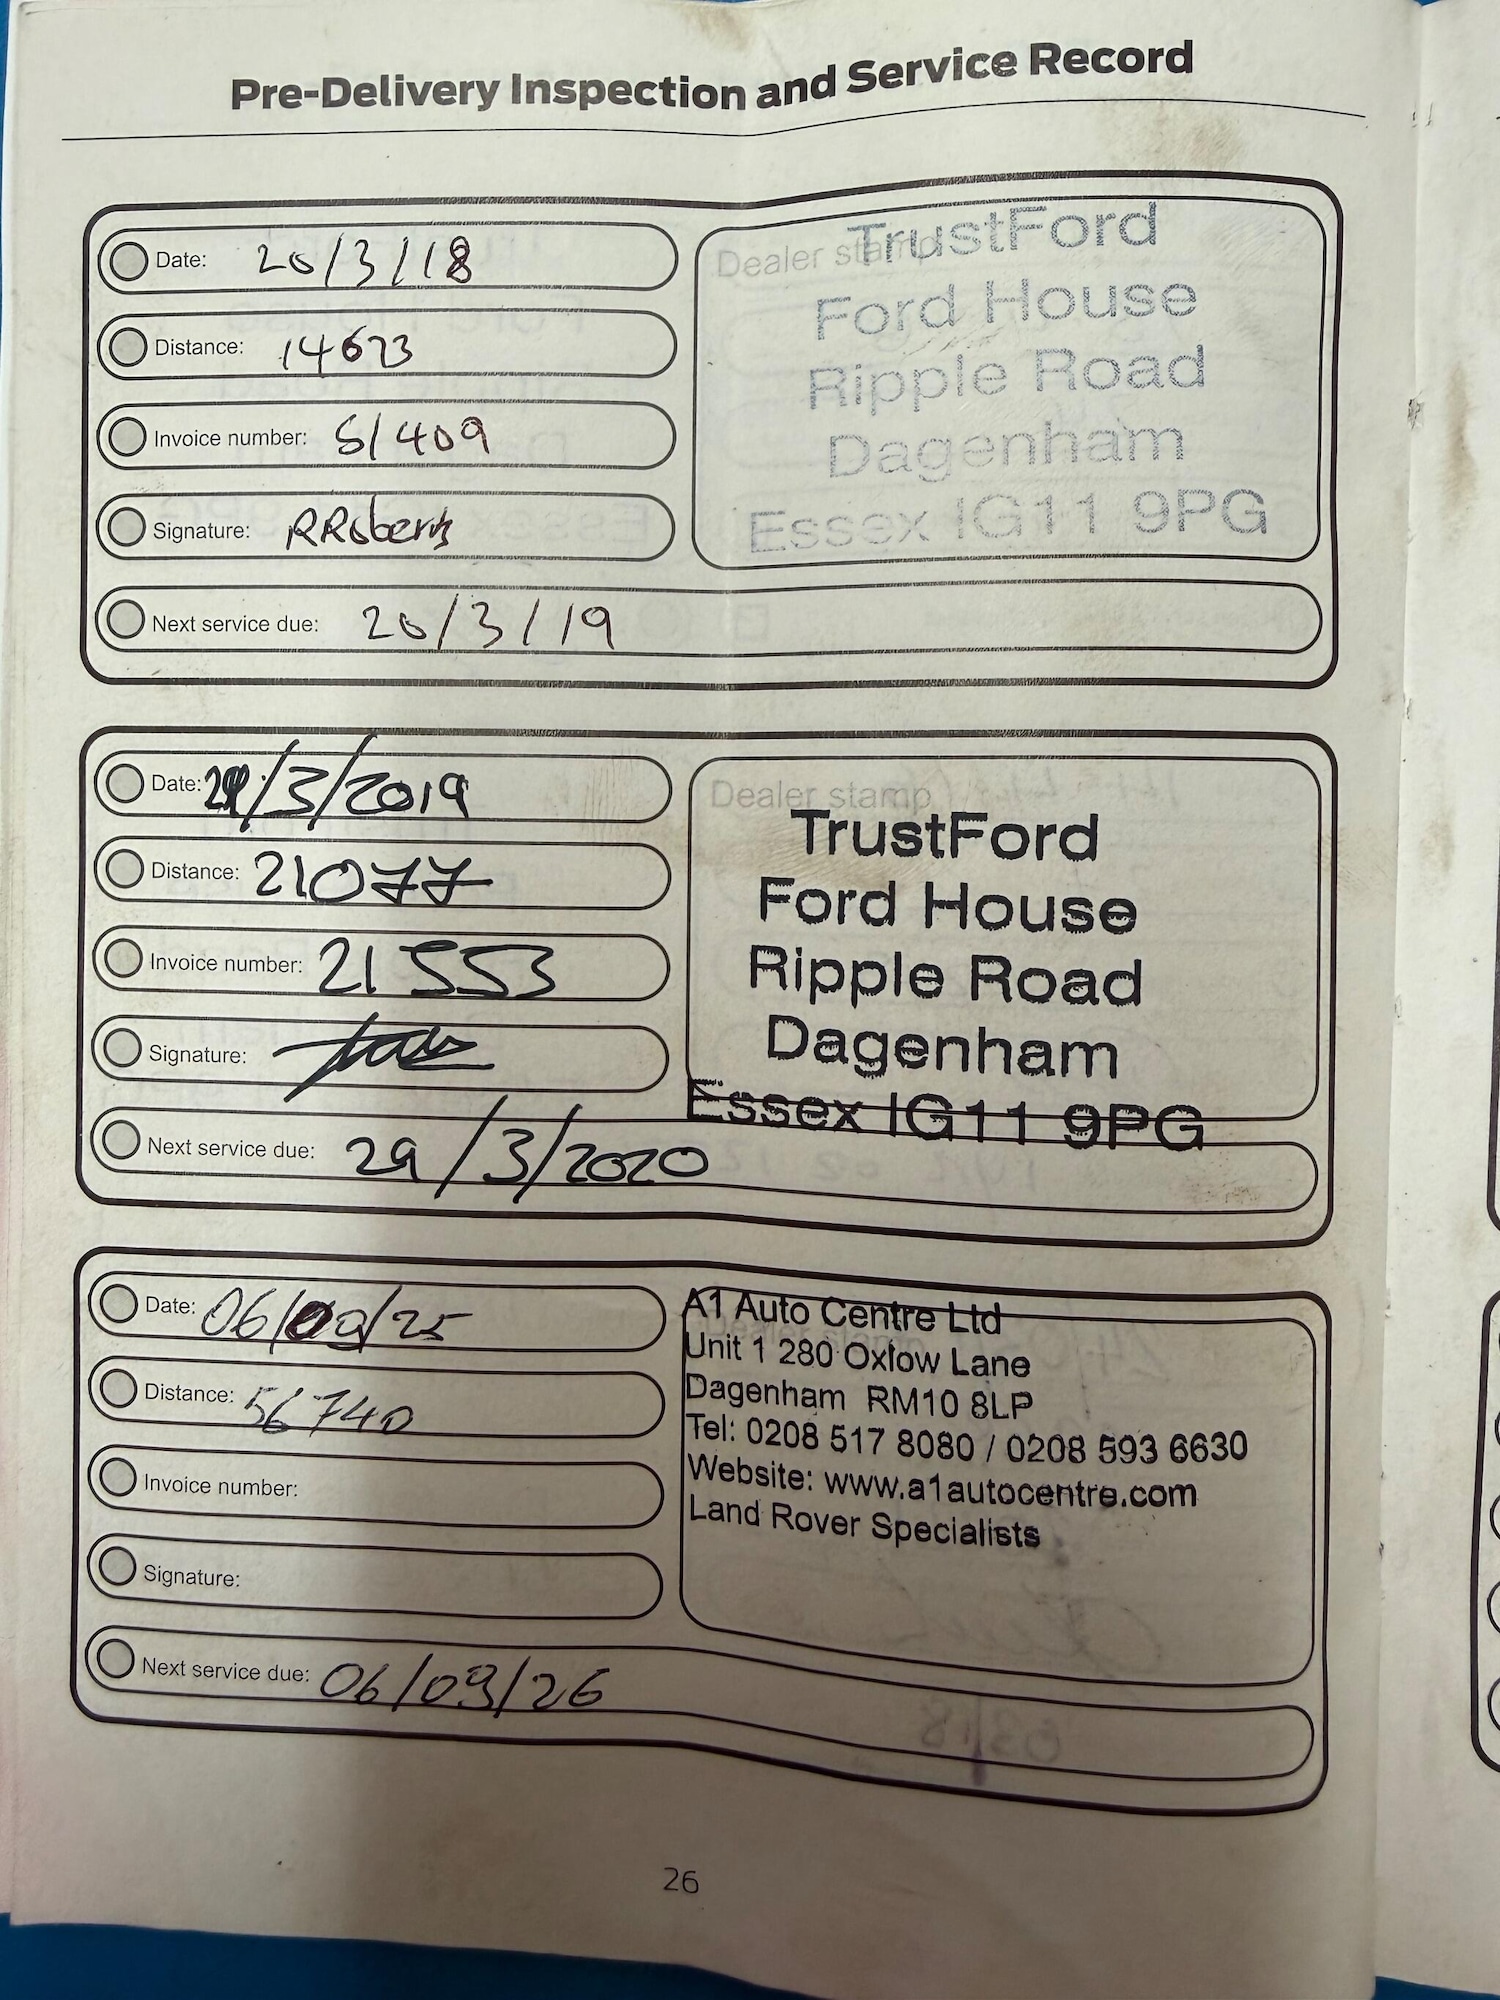 Pre-Delivery Inspection and Service Record
Date: 20/3/18
Distance: 14623
Invoice number: S/409
Signature: RRoberts
Next service due: 20/3/19
Dealer stamp
TrustFord
Ford House
Ripple Road
Dagenham
Essex IG11 9PG
Date: /3/2019
Distance: 21077
Invoice number: 21553
Signature:
Next service due: 29/3/2020
Dealer stamp
TrustFord
Ford House
Ripple Road
Dagenham
Essex IG11 9PG
Date: 06/09/25
Distance: 56740
Invoice number:
Signature:
Next service due: 06/09/26
Dealer stamp
A1 Auto Centre Ltd
Unit 1 280 Oxlow Lane
Dagenham RM10 8LP
Tel: 0208 517 8080 / 0208 593 6630
Website: www.a1autocentre.com
Land Rover Specialists
26